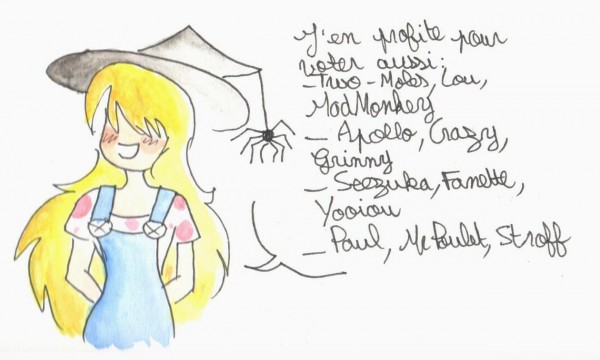 J'en profite pour
voter aussi:
- Two-Moles, Lou,
MadMonkey
- Apollo, Crazy,
Grinny
- Seezuka, Fanette,
Yooiou
- Paul, McPoulet, Stroff